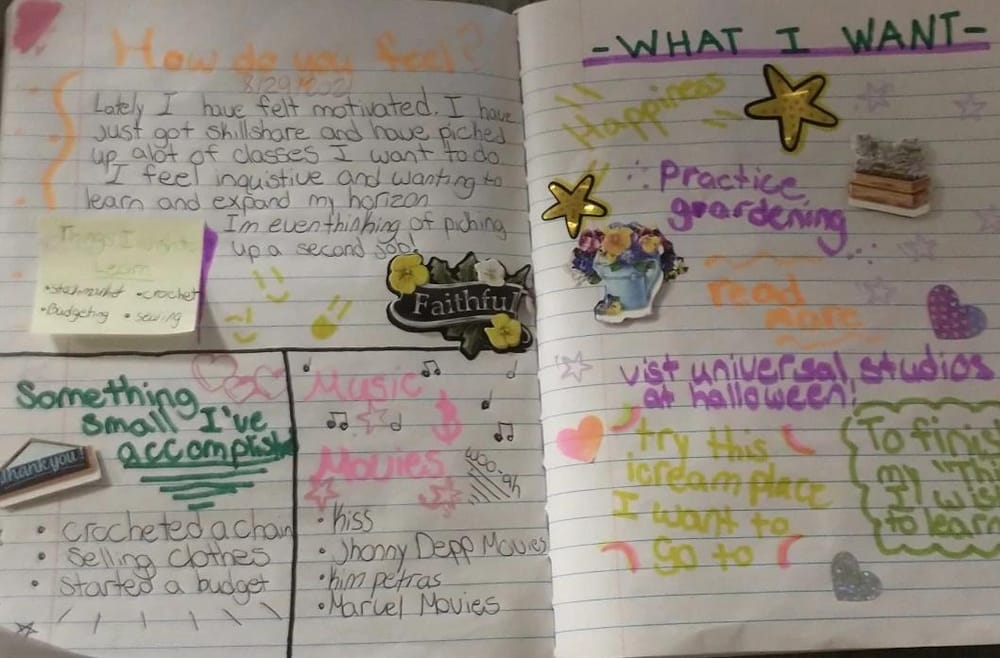 How do you feel?
Lately I have felt motivated. I have
just got skillshare and have piched
up alot of classes I want to do.
I feel inquistive and wanting to
learn and expand my horizon
I'm even thinking of piching
up a second job!
Things I want
Learn
•stock market •crochet
•Budgeting •sewing
Faithful
Something
small I've
accomplish
Thank you!
• crocheted a chain
• Selling clothes
• Started a budget
Music
&
Movies
woo-ah
• Kiss
• Jhonny Depp Movies
• Kim petras
• Marvel Movies
-WHAT I WANT-
Happiness
Practice
gvardening
read
more
vist universal studios
at halloween!
try this
icream place
I want to
go to
To finish
my "Thi
I wish
to learn